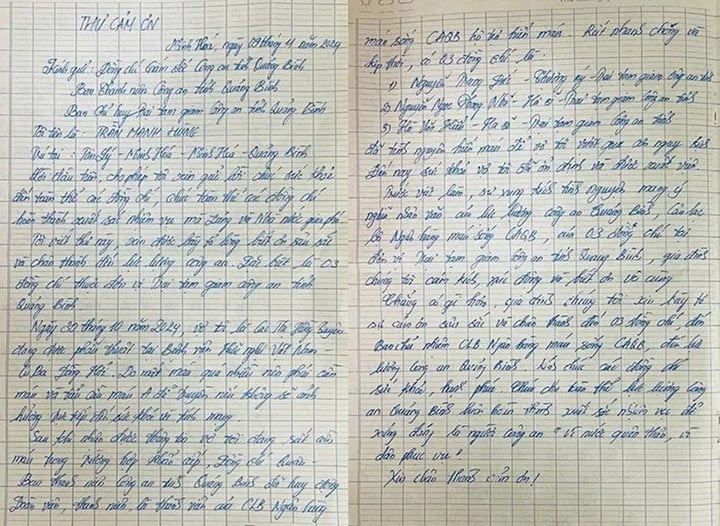 THƯ CẢM ƠN
Minh Hoá, ngày 09 tháng 11 năm 2024
Kính gửi: Đồng chí Giám đốc Công an tỉnh Quảng Bình
Ban Thanh niên Công an tỉnh Quảng Bình
Ban Chỉ huy Trại tạm giam Công an tỉnh Quảng Bình
Tôi tên là: TRẦN MẠNH HÙNG
Trú tại: Tân Lý - Minh Hoá - Minh Hoá - Quảng Bình
Lời đầu tiên, cho phép tôi xin gửi lời chúc sức khoẻ
đến toàn thể các đồng chí, chúc toàn thể các đồng chí
hoàn thành xuất sắc nhiệm vụ mà Đảng và Nhà nước giao phó.
Tôi viết thư này, xin được bày tỏ lòng biết ơn sâu sắc
và chân thành đến lực lượng công an. Đặc biệt là 03
đồng chí thuộc đơn vị Trại tạm giam công an tỉnh
Quảng Bình.
Ngày 30 tháng 10 năm 2024, vợ tôi là Thị Hồng
đang được phẫu thuật tại Bệnh viện Hữu nghị Việt Nam -
Cu Ba Đồng Hới. Do mất máu quá nhiều nên phải cần
máu và tiểu cầu máu A để truyền nếu không sẽ ảnh
hưởng trực tiếp đến sức khoẻ và tính mạng.
Sau khi nhận được thông tin vợ tôi đang rất cần
máu trong trường hợp khẩn cấp, Đồng chí Quân -
Ban thanh niên công an tỉnh Quảng Bình đã huy động
Đoàn viên, thanh niên là thành viên của CLB Ngân hàng
máu sống CAQB hỗ trợ hiến máu. Rất nhanh chóng và
kịp thời, có 03 đồng chí là:
1) Nguyễn Trung - Thượng uý - Trại tạm giam công an tỉnh
2) Nguyễn Ngọc - Hạ sĩ - Trại tạm giam công an tỉnh
3) Hồ Văn - Hạ sĩ - Trại tạm giam công an tỉnh
đã tình nguyện hiến máu để vợ tôi vượt qua cơn nguy kịch
Đến nay sức khoẻ vợ tôi đã ổn định và được xuất viện
Trước việc làm, sự vụng tinh tình nguyện mang ý
nghĩa nhân văn của lực lượng công an Quảng Bình, Câu lạc
bộ Ngân hàng máu sống CAQB, của 03 đồng chí tại
đơn vị Trại tạm giam công an tỉnh Quảng Bình, gia đình
chúng tôi cảm kích, xúc động và biết ơn vô cùng
Chẳng có gì hơn, gia đình chúng tôi xin bày tỏ
sự cảm ơn sâu sắc và chân thành đến 03 đồng chí, đến
Ban chủ nhiệm CLB Ngân hàng máu sống CAQB, đến lực
lượng Công an Quảng Bình. Xin chúc các đồng chí
sức khoẻ, hạnh phúc. Chúc cho toàn thể lực lượng công
an Quảng Bình luôn hoàn thành xuất sắc nhiệm vụ để
xứng đáng là người công an "vì nước quên thân, vì
dân phục vụ".
Xin chân thành cảm ơn!